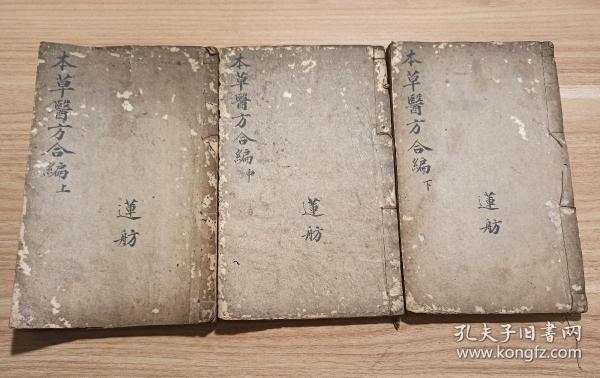 本草醫方合編上
蓮舫
本草醫方合編中
蓮舫
本草醫方合編下
蓮舫
孔夫子旧书网
www.kongfz.com